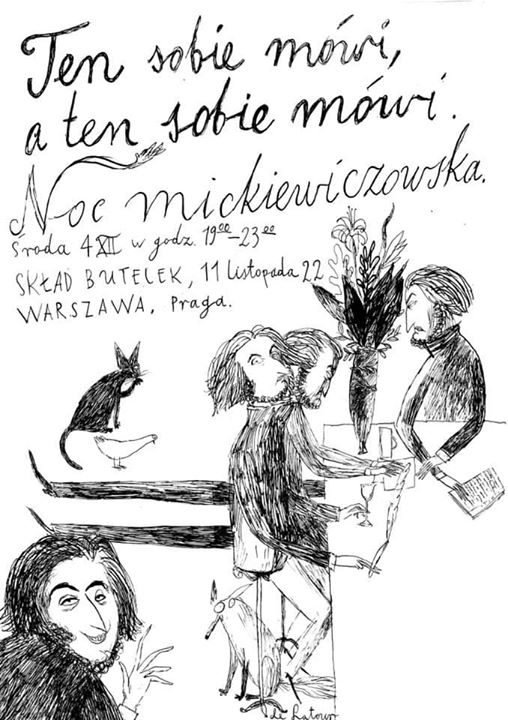 Ten sobie mówi,
a ten sobie mówi.
Noc mickiewiczowska.
środa 4 XII w godz. 19⁰⁰–23⁰⁰
SKŁAD BUTELEK, 11 Listopada 22
WARSZAWA, Praga.
de Latour